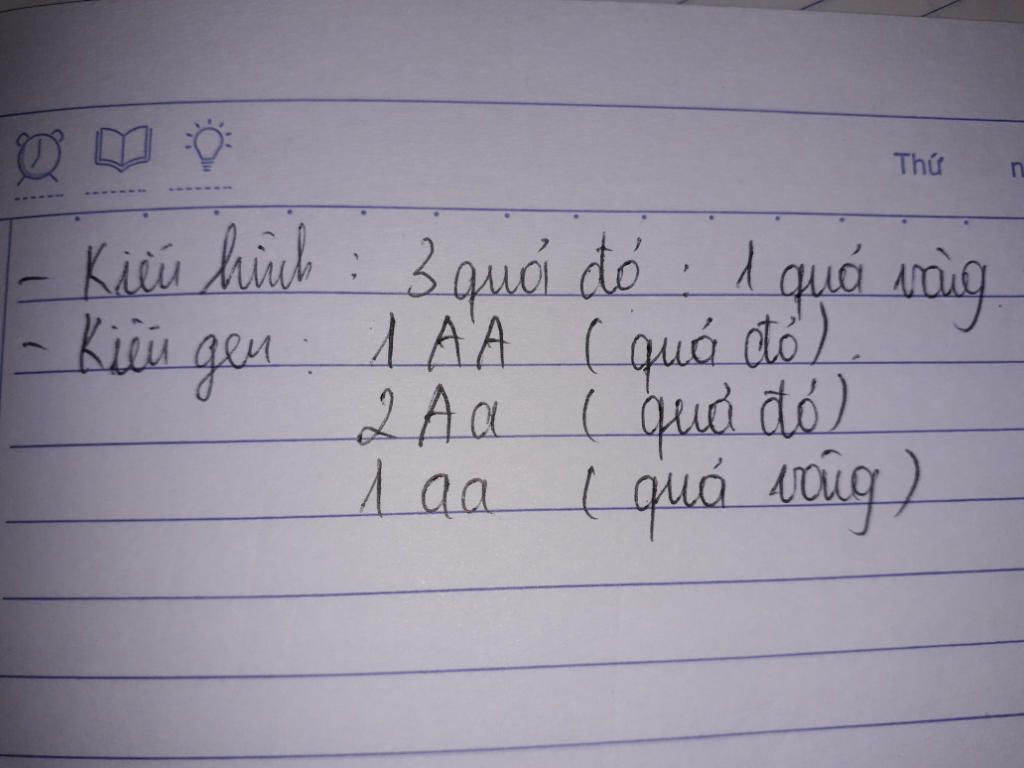 Thứ
- Kiểu hình : 3 quả đỏ : 1 quả vàng
- Kiểu gen : 1 AA ( quả đỏ ) .
2 Aa ( quả đỏ )
1 aa ( quả vàng )